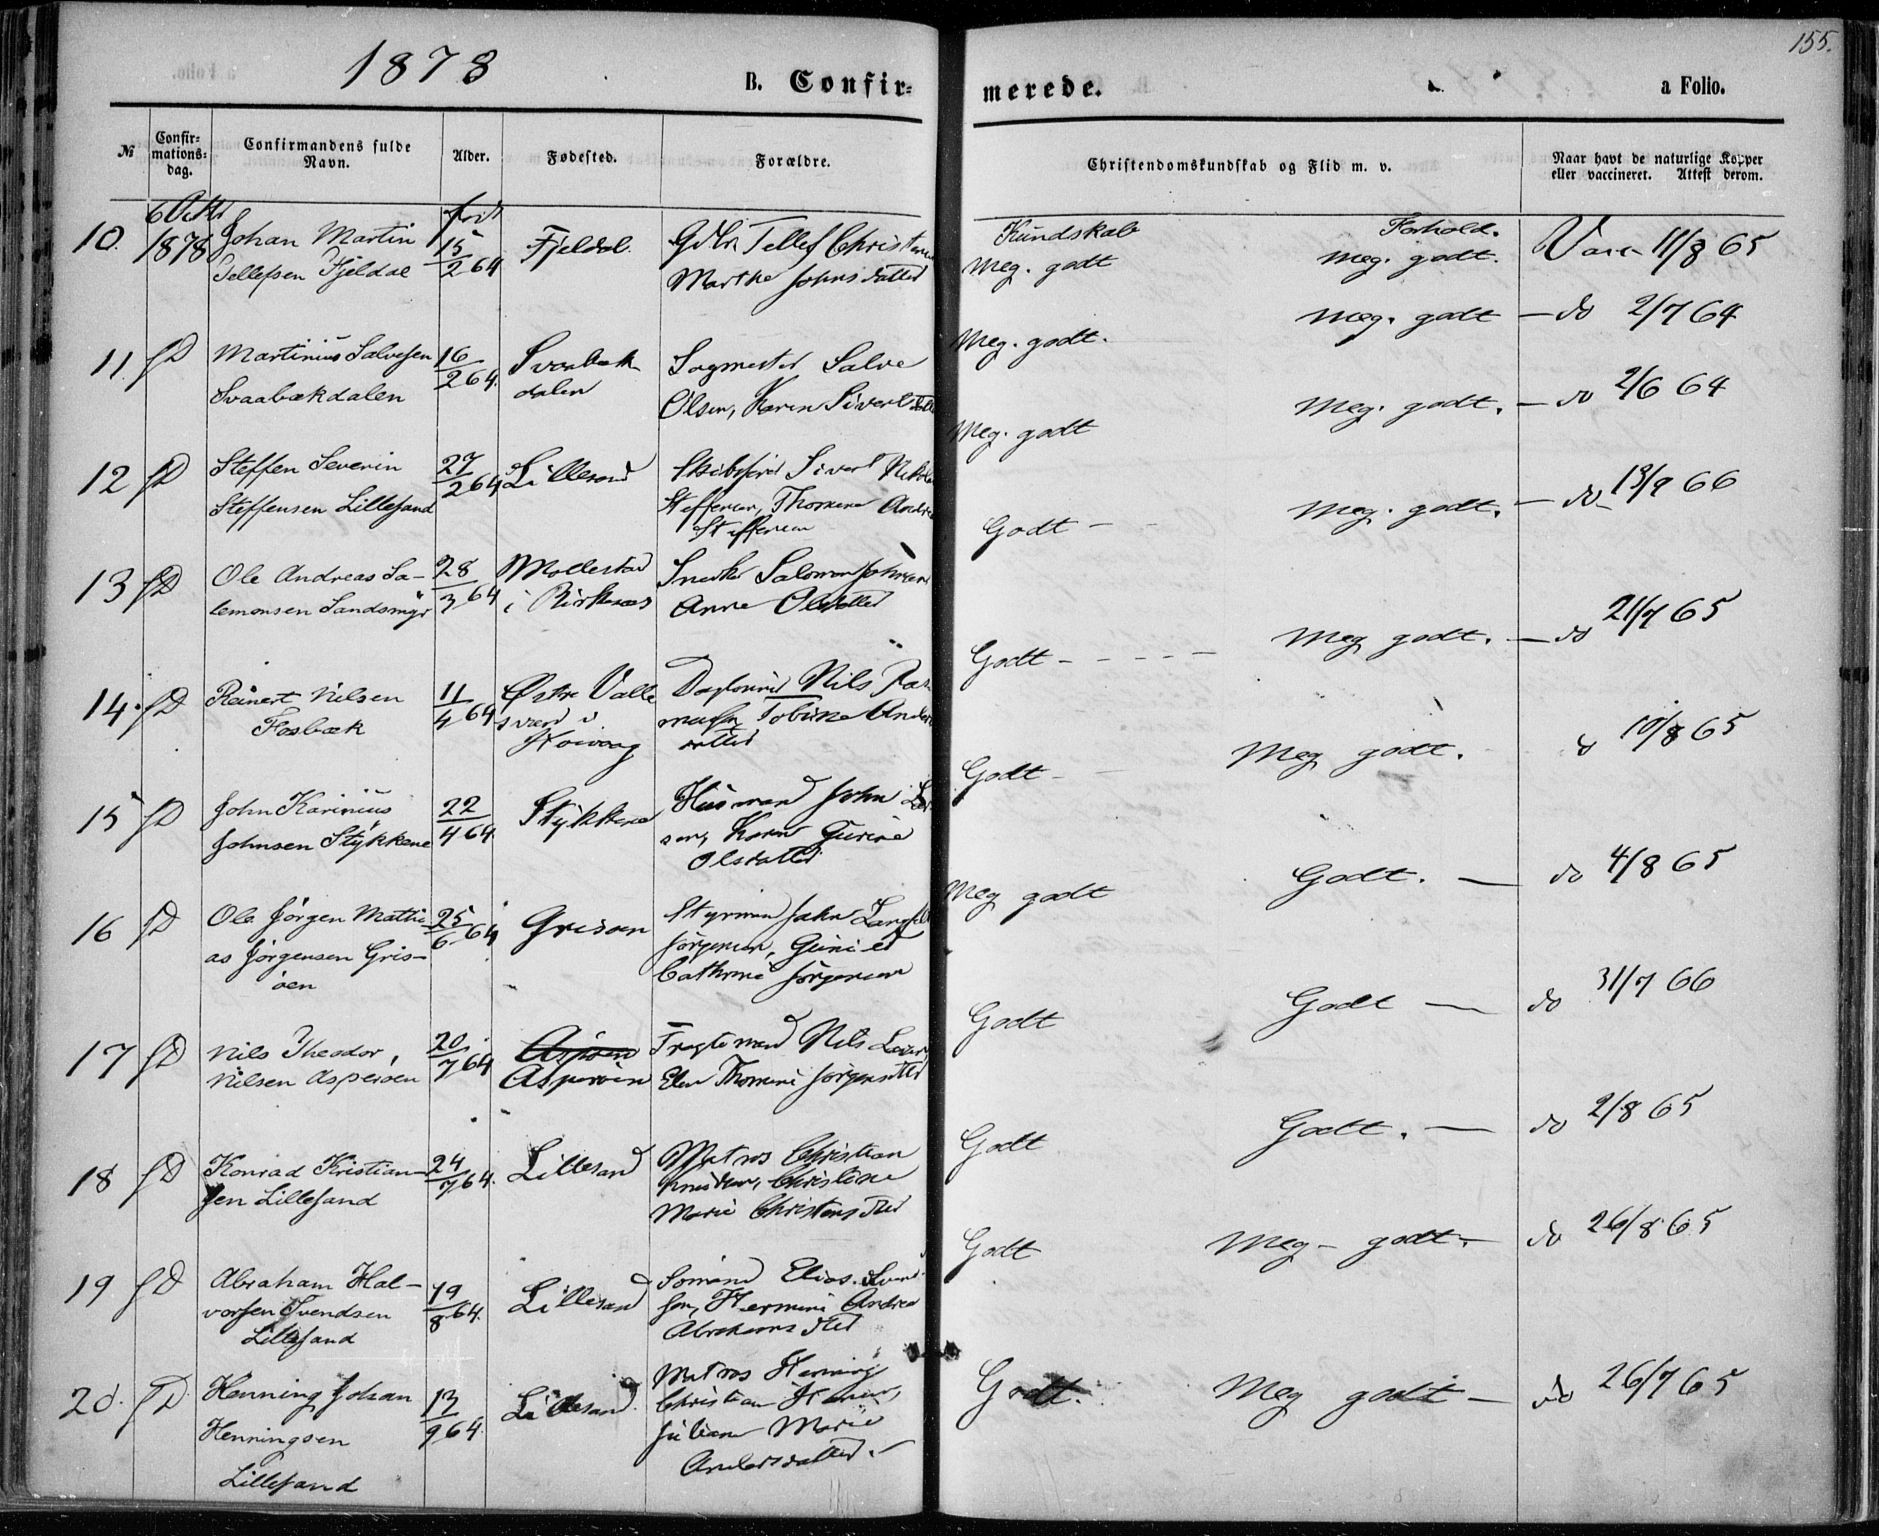 1878
B. Confir=
merede.
155.
a Folio.
№
Confir=
mations=
dag.
Confirmandens fulde
Navn.
Alder.
Fødested.
Forældre.
Christendomskundskab og Flid m. v.
Naar havt de naturlige Kopper
eller vaccineret. Attest derom.
Kundskab
Forhold.
10. 6 Oktr 1878
Johan Martin
Tellefsen Fjeldal
født 15/2 64
Fjeldal.
Gdbr Tellef
Marthe Johnsdatter
Meg. godt
Meg. godt.
Vacc 11/8 65
11. sD
Martinius Salvesen
Svaabækdalen
16/2 64.
Svaabæk
dalen
Sagmester Salve
Olsen, Karen
Meg. godt.
Meg. godt — do 2/7 64
12 sD
Steffen Severin
Steffensen Lillesand
27/2 64
Lillesand
Sivert
Steffensen, Thomine
Steffensen
Meg. godt
Meg. godt. — do 2/6 64
13 sD
Ole Andreas Sa-
lemonsen Sandsmyr
28/3 64
Mollestad
i Birkenæs
Snedker Salomon Johnsen
Anne Olsdatter
Godt —
Meg. godt. — do 13/9 66
14. sD
Reinert Nilsen
Fosbæk
11/4 64
Østre Valle
sværd i
Høivaag
Nils
Tobine
datter
Godt - - - - -
Meg godt. — do 21/7 65
15 sD
John Karinius
Johnsen Stykkene
22/4 64.
Stykkene
Husmand John
sen, Karen
Olsdatter
Godt -
Meg godt. 10/8 65
16 sD
Ole Jörgen Matti-
as Jörgensen Gris-
öen
25/6 64
Grisöen
Styrmand
Jörgensen,
Cathrine Jörgensen
Meg godt
Godt. — do 4/8 65
17 sD
Nils Theodor,
Nilsen Asperöen
20/7 64
Asperöen
Nils
Thomine
Godt
Godt — do 31/7 66
18 sD
Konrad Kristian-
sen Lillesand
24/7 64.
Lillesand
Matros Christian
Christine
Marie
Godt
Godt. — do 2/8 65
19 sD
Abraham Hal-
vorsen Svendsen
Lillesand
19/8 64.
Lillesand
Sömand Elias Svend
sen, Hermine Andrea
Abrahams dtter
Godt
Meg - godt. — do 26/8 65
20. sD
Henning Johan
Henningsen
Lillesand
13/9 64.
Lillesand.
Matros Henning
Christian
Juliane Marie
Andersdatter.
Godt.
Meg godt — do 26/7 65